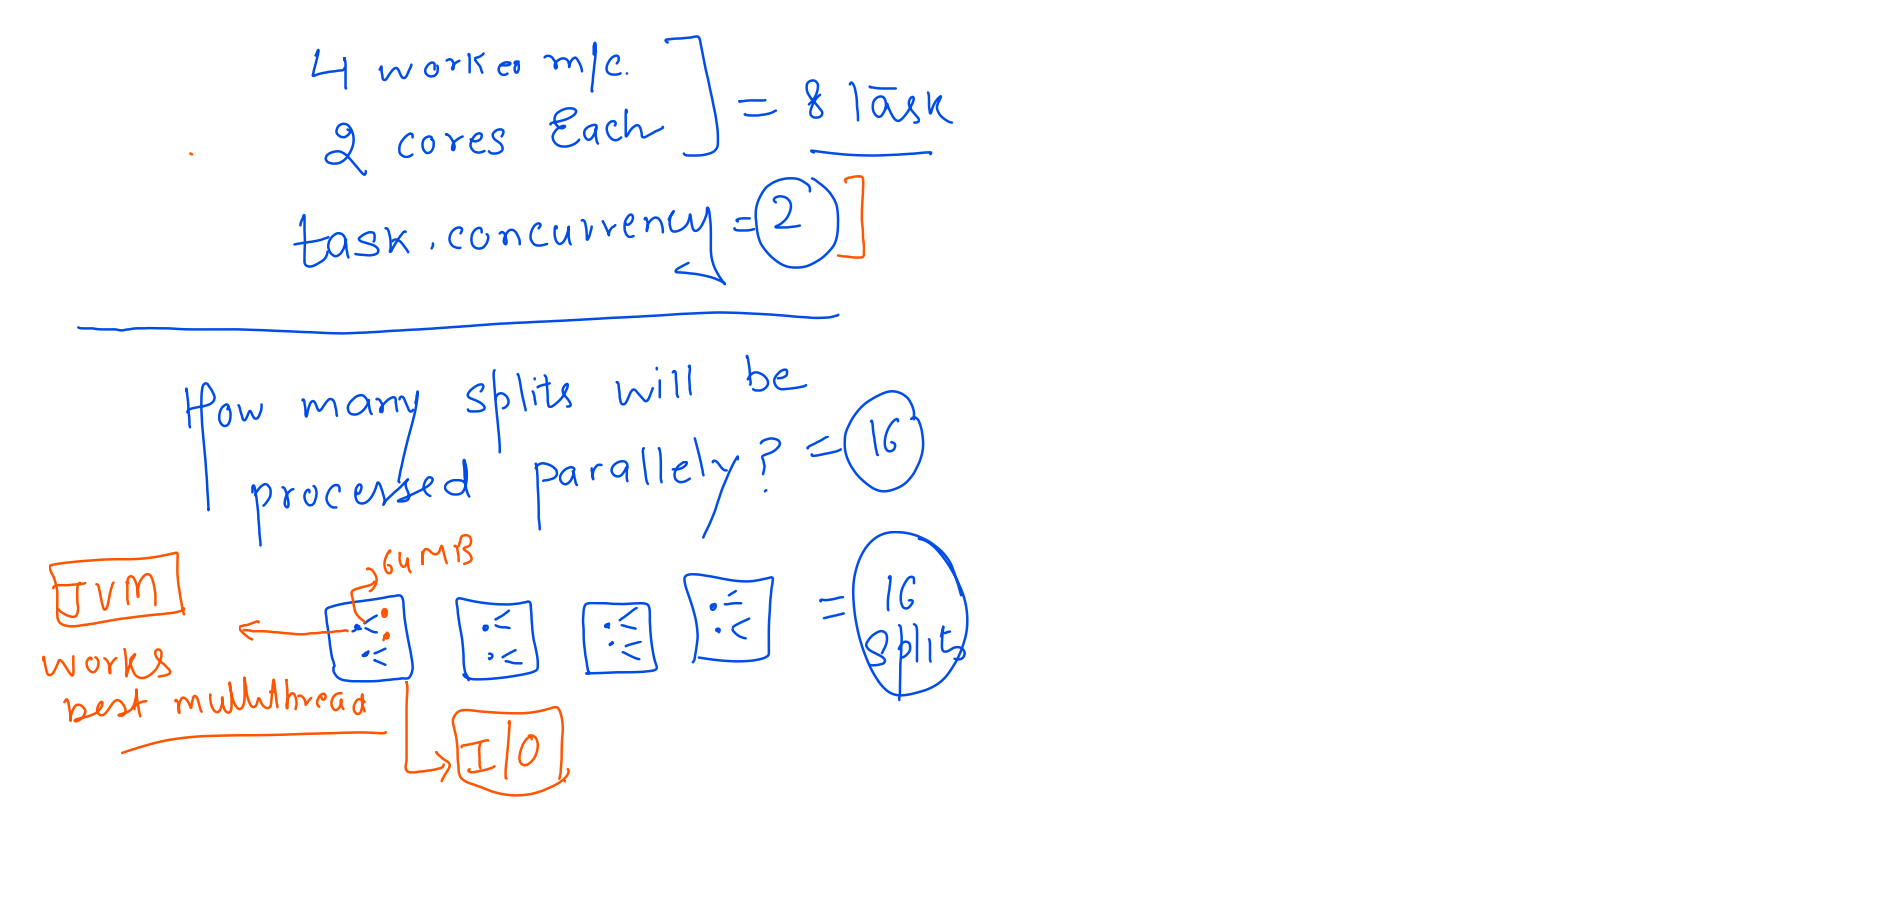 4 worker m/c.
2 cores Each ] = 8 Task
task.concurrency = 2 ]
How many splits will be
processed parallely? = 16
64 MB
JVM
= 16
splits
works
best multithread
I/O